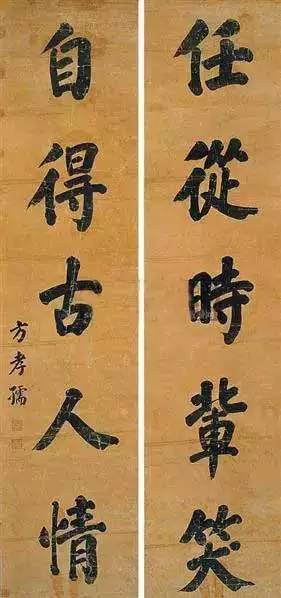 任從時輩笑
自得古人情
方孝孺